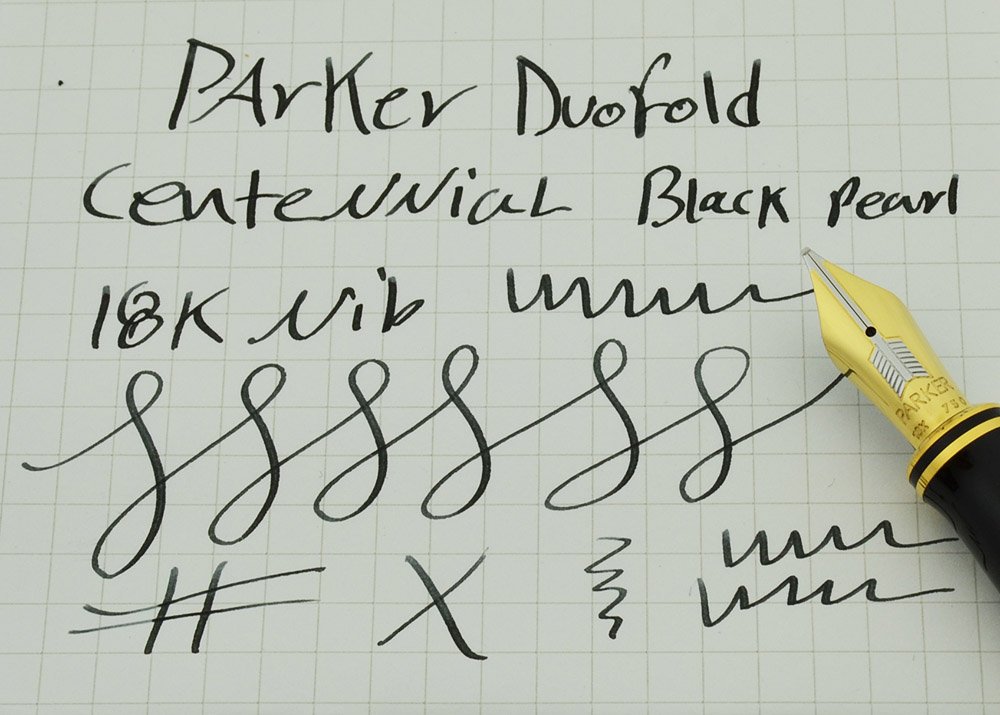 PArKer Duofold
Centennial Black Pearl
18K Nib
PARKER
18K 750
#
X